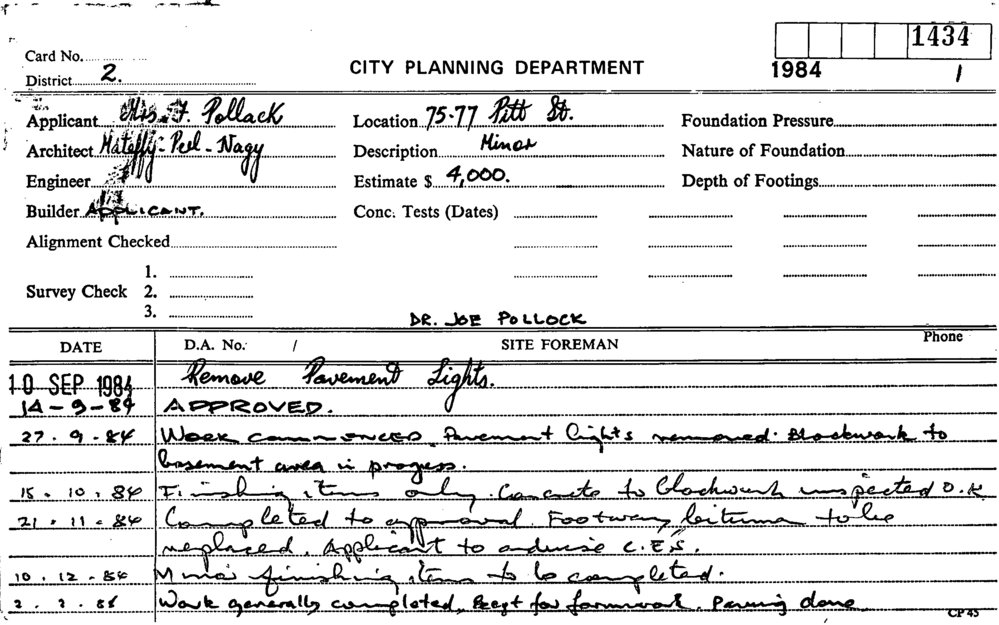 1434
Card No.
District 2.
CITY PLANNING DEPARTMENT
1984 1
Applicant Mrs. F. Pollack
Location 75-77 Pitt St.
Foundation Pressure
Architect Mateffy-Peel-Nagy
Description Minor
Nature of Foundation
Engineer
Estimate $ 4,000.
Depth of Footings
Builder APPLICANT.
Conc. Tests (Dates)
Alignment Checked
Survey Check 1.
2.
3.
DR. JOE POLLOCK
DATE D.A. No. / SITE FOREMAN Phone
10 SEP 1984 Remove Pavement Lights.
14-9-84 APPROVED.
27.9.84 Work commenced. Pavement lights removed. Blockwork to
basement area in progress.
15.10.84 Finishing items only. Concrete to blockwork inspected O.K
21.11.84 Completed to approval. Footway bitumen to be
replaced. Applicant to advise C.E.S.
10.12.84 Minor finishing items to be completed.
Work generally completed, except for formwork. Paving done
CP45